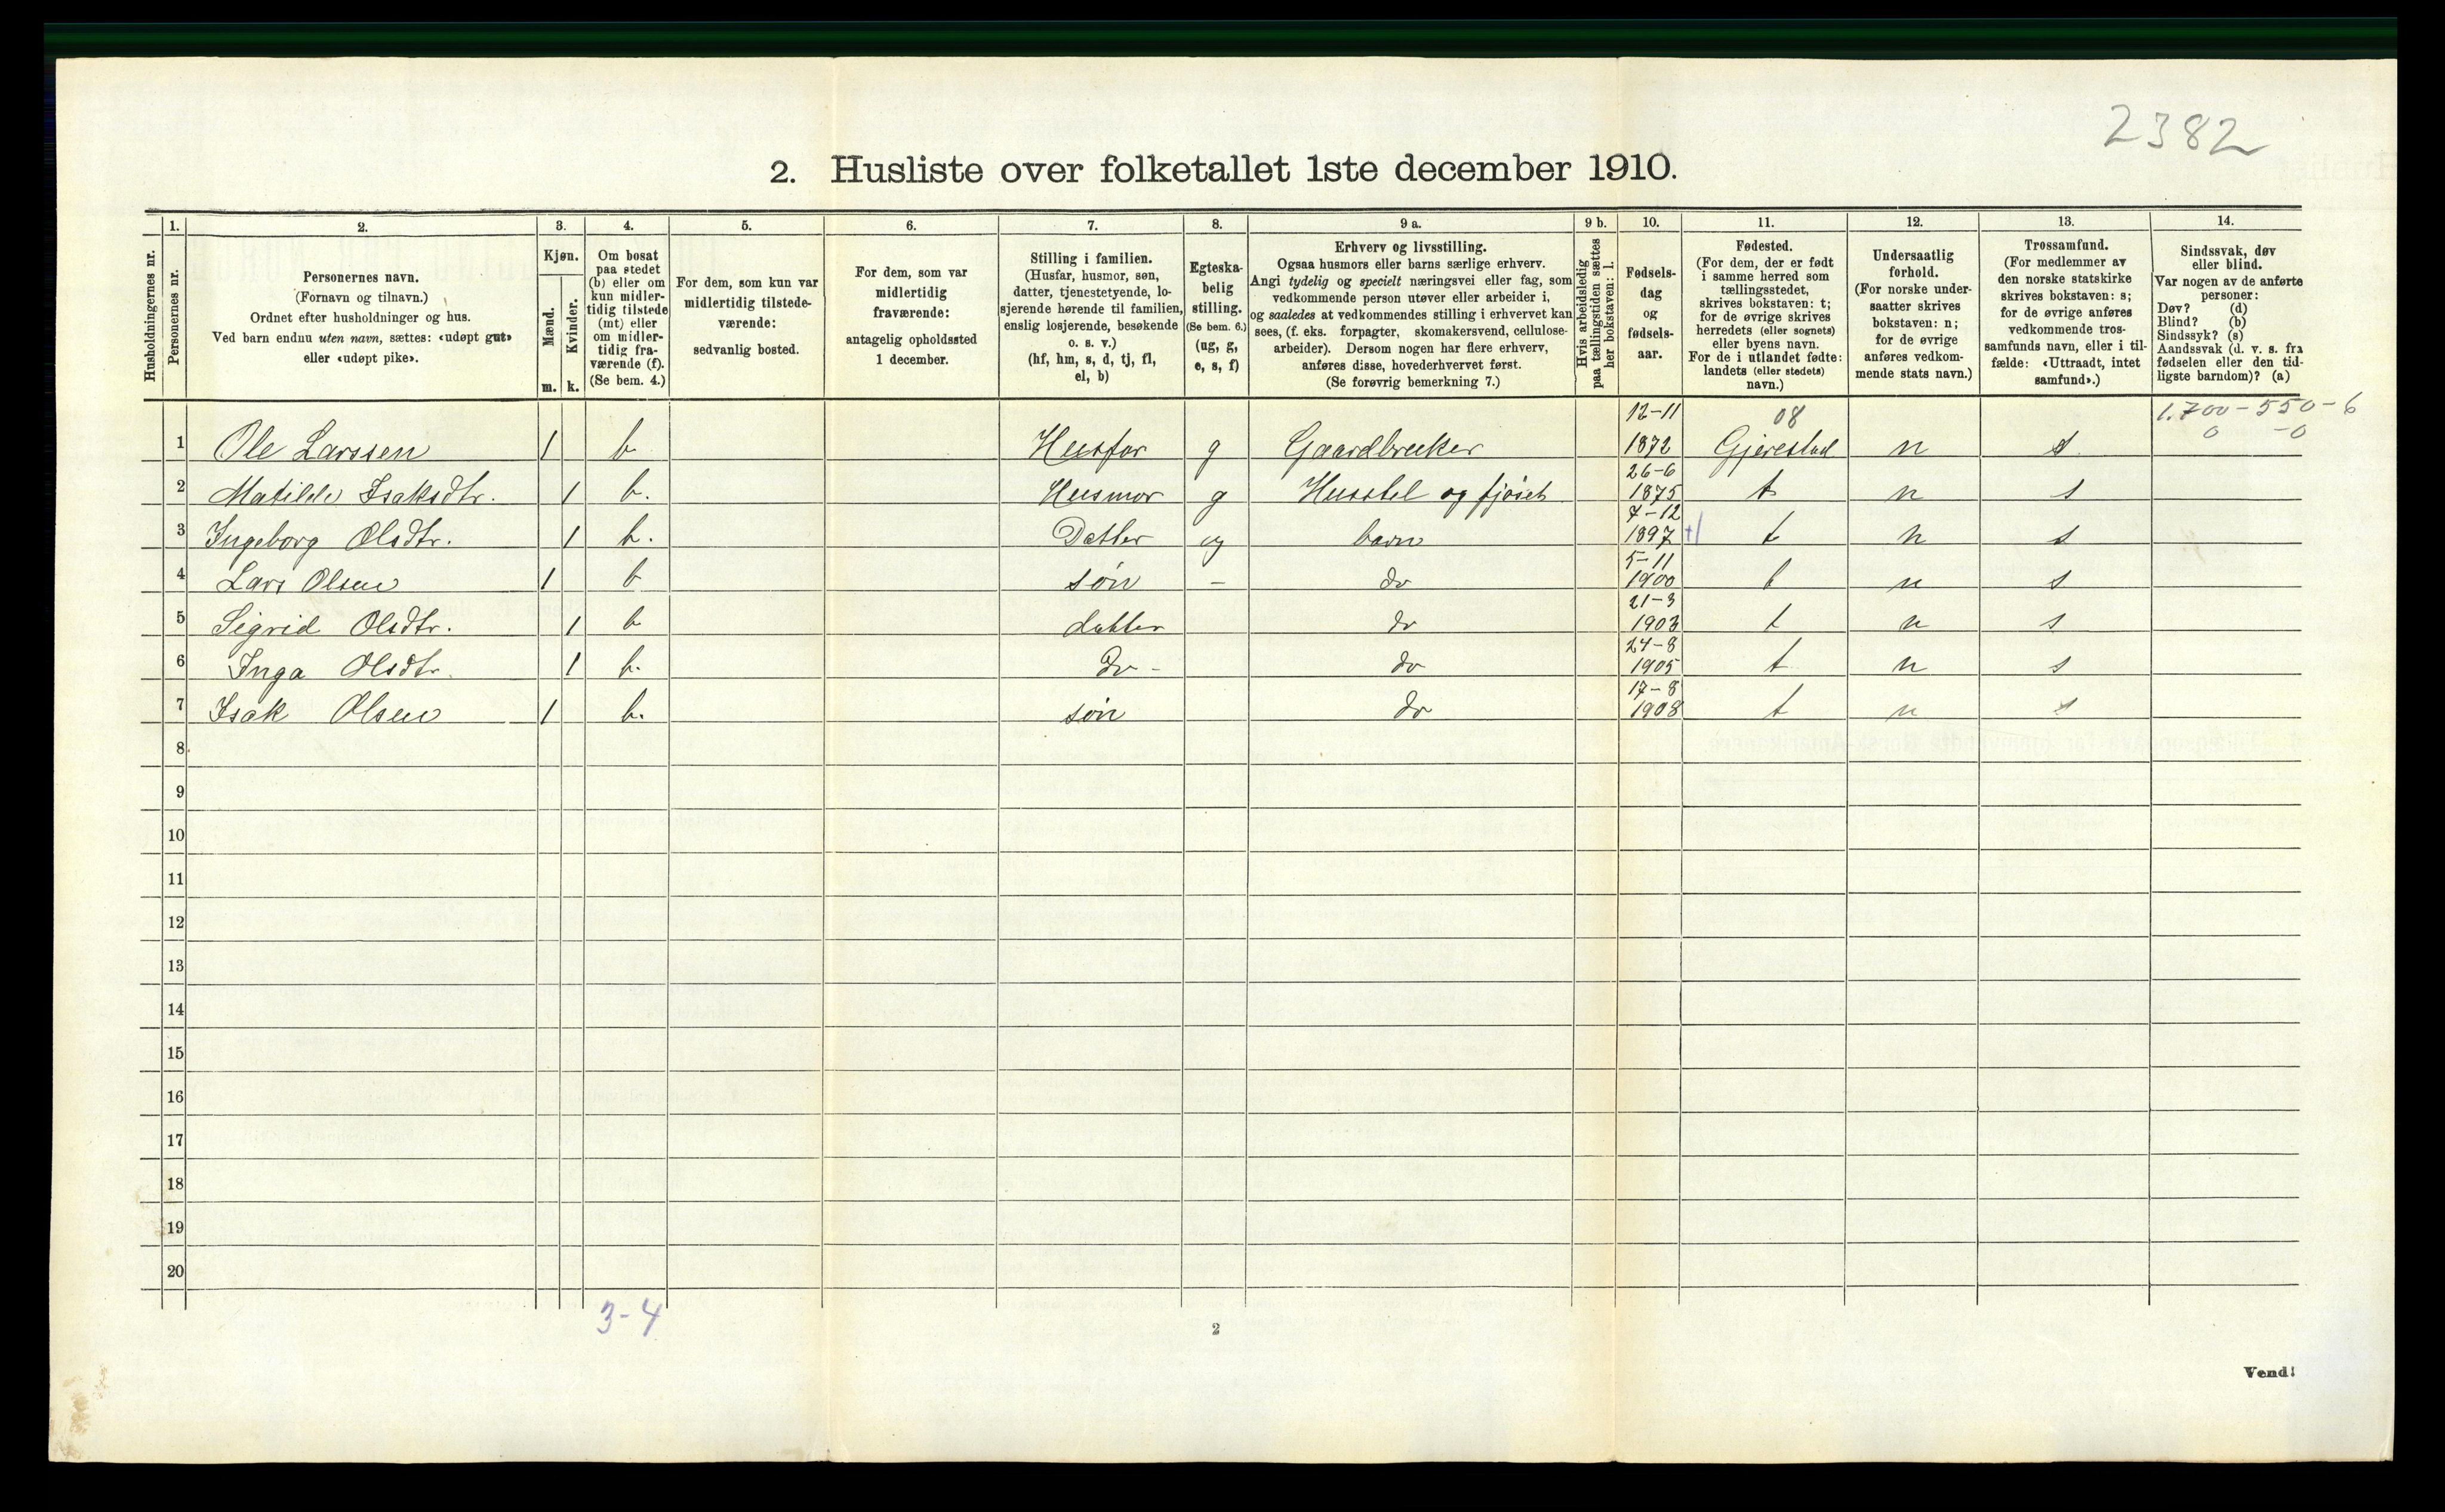 2382
2. Husliste over folketallet 1ste december 1910.
1. 2. 3. 4. 5. 6. 7. 8. 9 a. 9 b. 10. 11. 12. 13. 14.
Husholdningernes nr.
Personernes nr.
Personernes navn.
(Fornavn og tilnavn.)
Ordnet efter husholdninger og hus.
Ved barn endnu uten navn, sættes: «udøpt gut»
eller «udøpt pike».
Kjøn.
Mænd.
m.
Kvinder.
k.
Om bosat
paa stedet
(b) eller om
kun midler-
tidig tilstede
(mt) eller
om midler-
tidig fra-
værende (f).
(Se bem. 4.)
For dem, som kun var
midlertidig tilstede-
værende:
sedvanlig bosted.
For dem, som var
midlertidig
fraværende:
antagelig opholdssted
1 december.
Stilling i familien.
(Husfar, husmor, søn,
datter, tjenestetyende, lo-
sjerende hørende til familien,
enslig losjerende, besøkende
o. s. v.)
(hf, hm, s, d, tj, fl,
el, b)
Egteska-
belig
stilling.
(Se bem. 6.)
(ug, g,
e, s, f)
Erhverv og livsstilling.
Ogsaa husmors eller barns særlige erhverv.
Angi tydelig og specielt næringsvei eller fag, som
vedkommende person utøver eller arbeider i,
og saaledes at vedkommendes stilling i erhvervet kan
sees, (f. eks. forpagter, skomakersvend, cellulose-
arbeider). Dersom nogen har flere erhverv,
anføres disse, hovederhvervet først.
(Se forøvrig bemerkning 7.)
Hvis arbeidsledig
paa tællingstiden sættes
her bokstaven: l.
Fødsels-
dag
og
fødsels-
aar.
Fødested.
(For dem, der er født
i samme herred som
tællingsstedet,
skrives bokstaven: t;
for de øvrige skrives
herredets (eller sognets)
eller byens navn.
For de i utlandet fødte:
landets (eller stedets)
navn.)
Undersaatlig
forhold.
(For norske under-
saatter skrives
bokstaven: n;
for de øvrige
anføres vedkom-
mende stats navn.)
Trossamfund.
(For medlemmer av
den norske statskirke
skrives bokstaven: s;
for de øvrige anføres
vedkommende tros-
samfunds navn, eller i til-
fælde: «Uttraadt, intet
samfund».)
Sindssvak, døv
eller blind.
Var nogen av de anførte
personer:
Døv? (d)
Blind? (b)
Sindssyk? (s)
Aandssvak (d. v. s. fra
fødselen eller den tid-
ligste barndom)? (a)
12-11 08 1.700-550-6
0 -0
1 Ole Larssen 1 b Husfar g Gaardbruker 1872 Gjerestad n s
26-6
2 Matilde Isaksdtr. 1 b. Husmor g Husstel og fjøset 1875 t n s
7-12
3 Ingeborg Olsdtr. 1 b. Datter ug barn 1897 t n s
5-11
4 Lars Olsen 1 b søn - do 1900 t n s
21-3
5 Sigrid Olsdtr. 1 b datter do 1903 t n s
24-8
6 Inga Olsdtr. 1 b. Do - do 1905 t n s
17-8
7 Isak Olsen 1 b. søn do 1908 t n s
8
9
10
11
12
13
14
15
16
17
18
19
20
3-4
2
Vend!